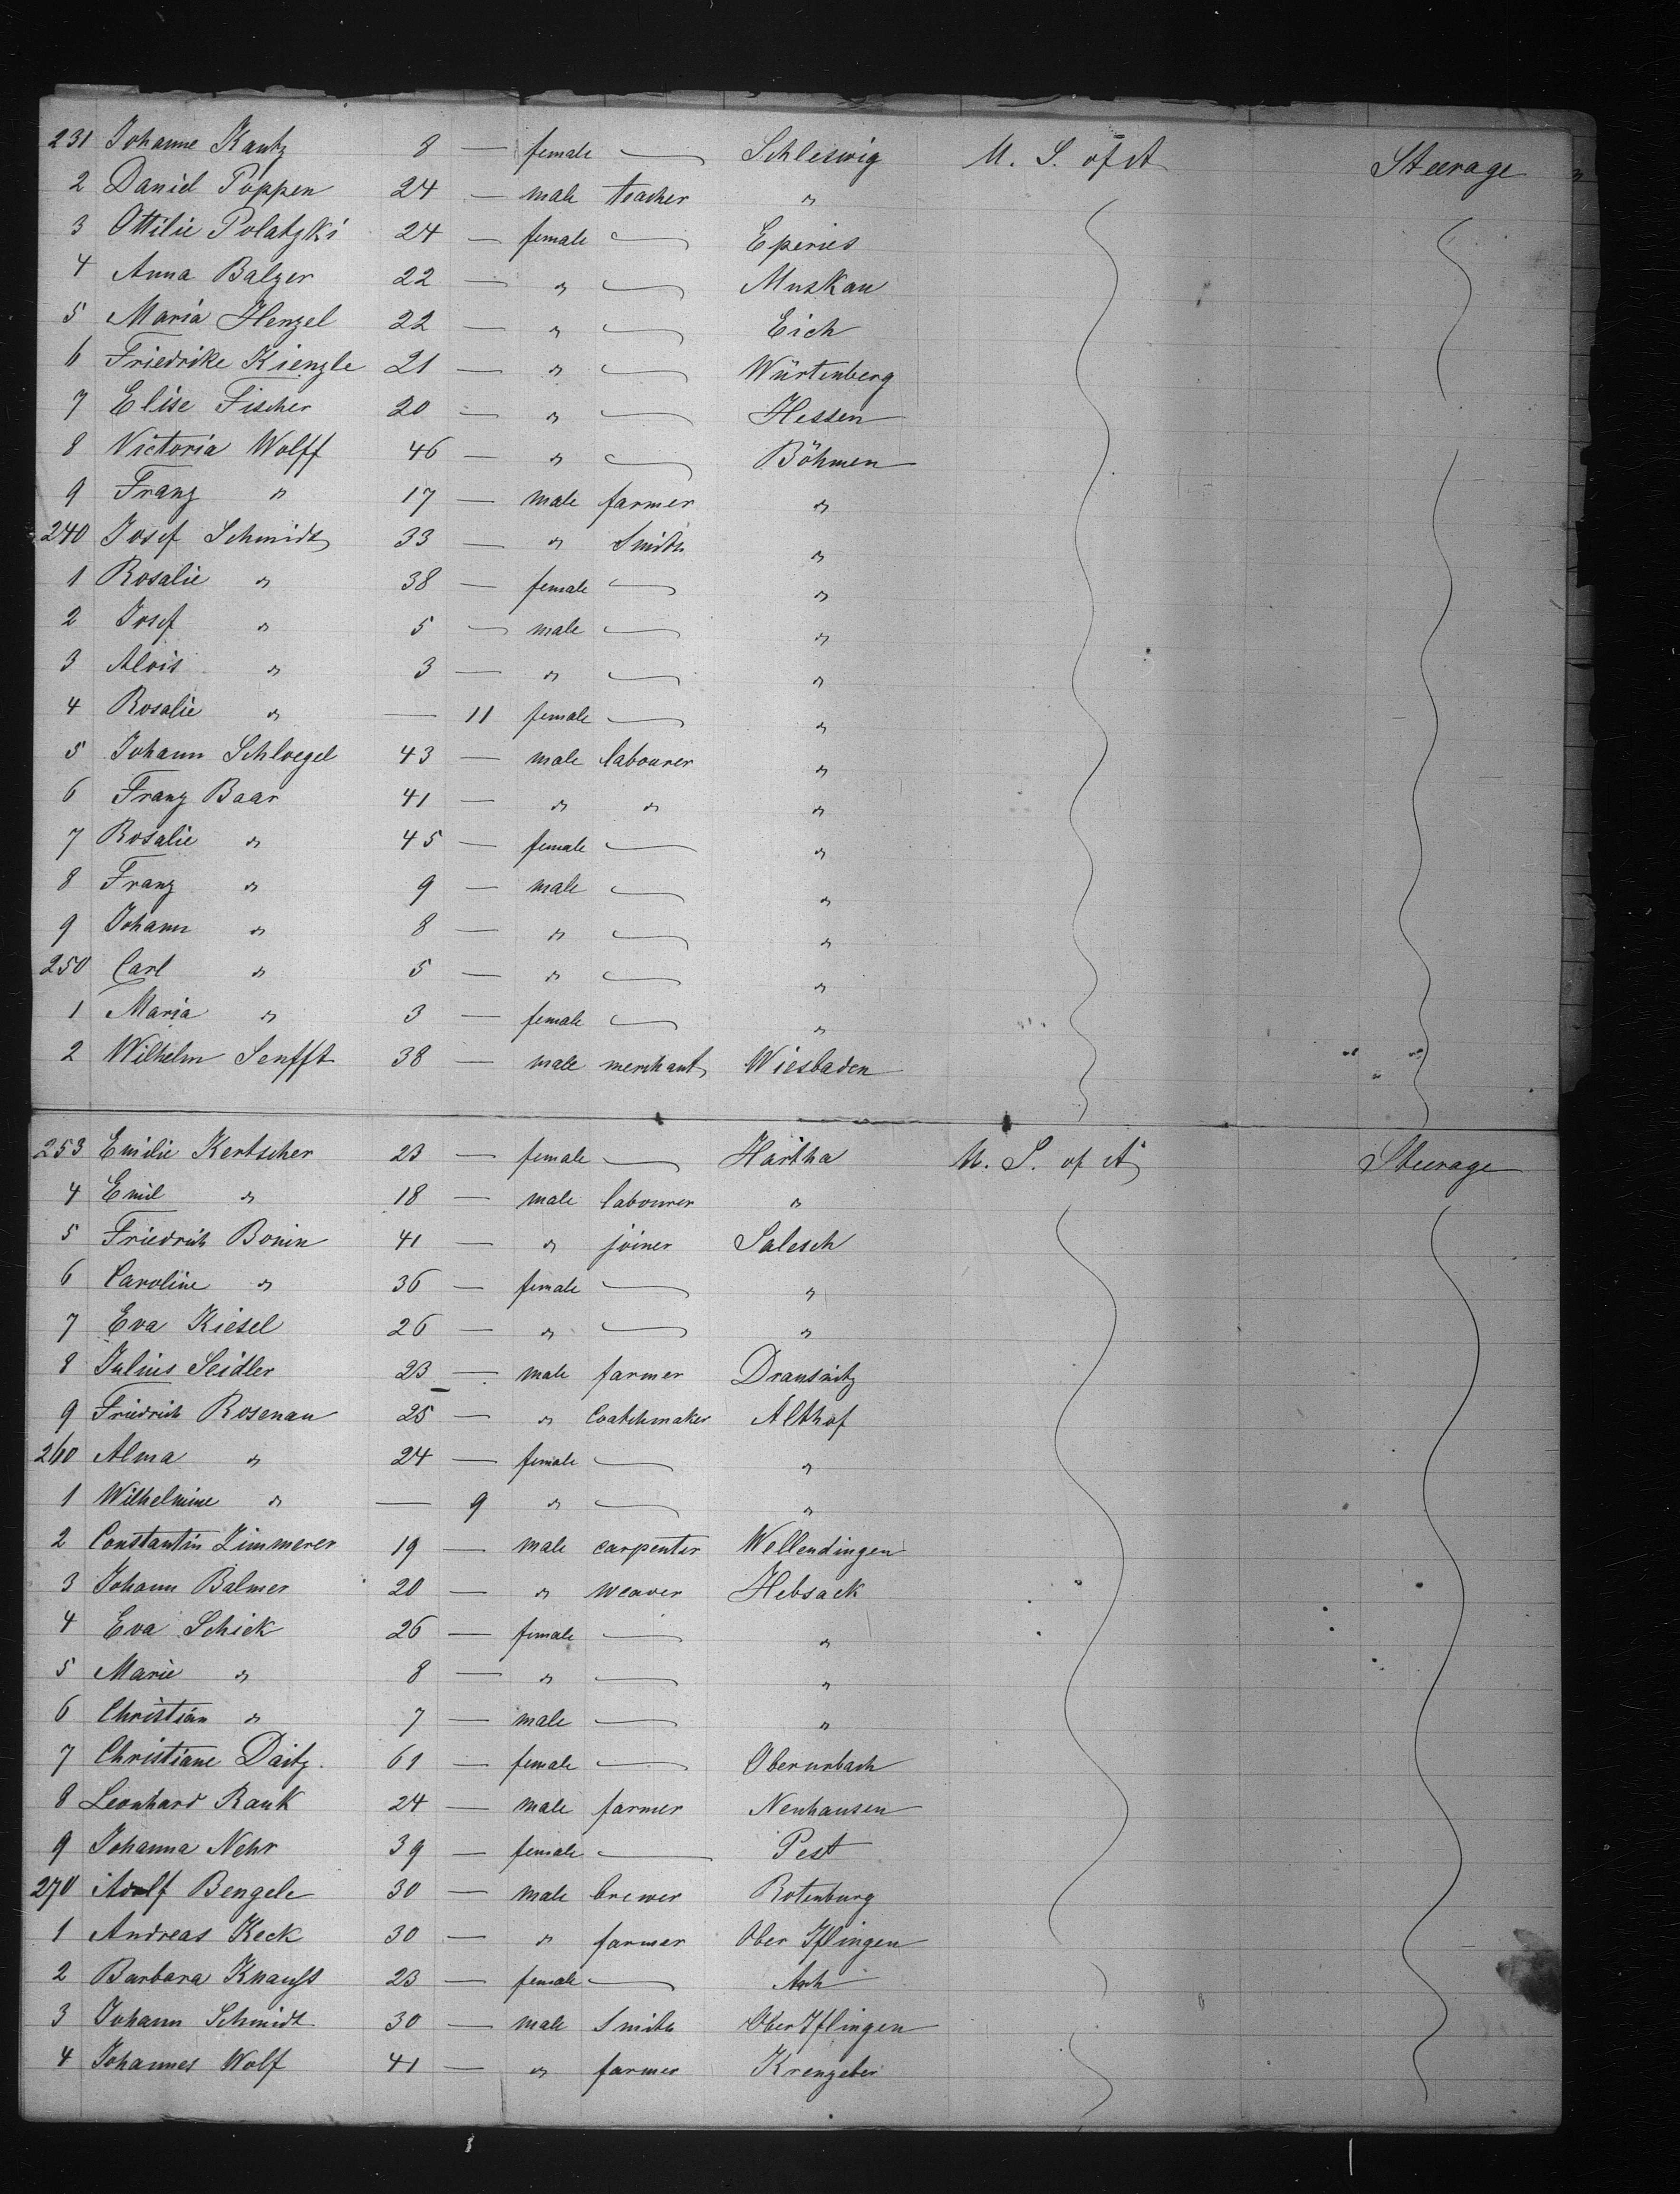 231 Johanne Kautz 8 — female — Schleswig U. S. of A Steerage
2 Daniel Poppen 24 — male teacher "
3 Ottilie Polatzki 24 — female — Eperies
4 Anna Balzer 22 — " — Muskau
5 Maria Henzel 22 — " — Eich
6 Friedrike Kienzle 21 — " — Würtenberg
7 Elise Fischer 20 — " — Hessen
8 Victoria Wolff 46 — " — Böhmen
9 Franz " 17 — male farmer "
240 Josef Schmidt 33 — " Smith "
1 Rosalie " 38 — female — "
2 Josef " 5 — male — "
3 Alois " 3 — " — "
4 Rosalie " — 11 female — "
5 Johann Schloegel 43 — male labourer "
6 Franz Baar 41 — " " "
7 Rosalie " 45 — female — "
8 Franz " 9 — male — "
9 Johann " 8 — " — "
250 Carl " 5 — " — "
1 Maria " 3 — female — "
2 Wilhelm Senfft 38 — male merchant Wiesbaden
253 Emilie Kertscher 23 — female — Hartha U. S. of A Steerage
4 Emil " 18 — male labourer "
5 Friedrich Bonin 41 — " joiner Salesch
6 Caroline " 36 — female — "
7 Eva Kiesel 26 — " — "
8 Julius Seidler 23 — male farmer Drausnitz
9 Friedrich Rosenau 25 — " Coatchmaker Althof
260 Alma " 24 — female — "
1 Wilhelmine " — 9 " — "
2 Constantin Zimmerer 19 — male carpenter Wellendingen
3 Johann Balmer 20 — " weaver Hebsack
4 Eva Schick 26 — female — "
5 Marie " 8 — " — "
6 Christian " 7 — male — "
7 Christiane Daitz 61 — female — Oberurbach
8 Leonhard Rauk 24 — male farmer Neuhausen
9 Johanna Nehr 39 — female — Pest
270 Adolf Bengele 30 — male brewer Rotenburg
1 Andreas Keck 30 — " farmer Ober Iflingen
2 Barbara Knauss 23 — female —
3 Johann Schmidt 30 — male Smith Ober Iflingen
4 Johannes Wolf 41 — " farmer Krengeber